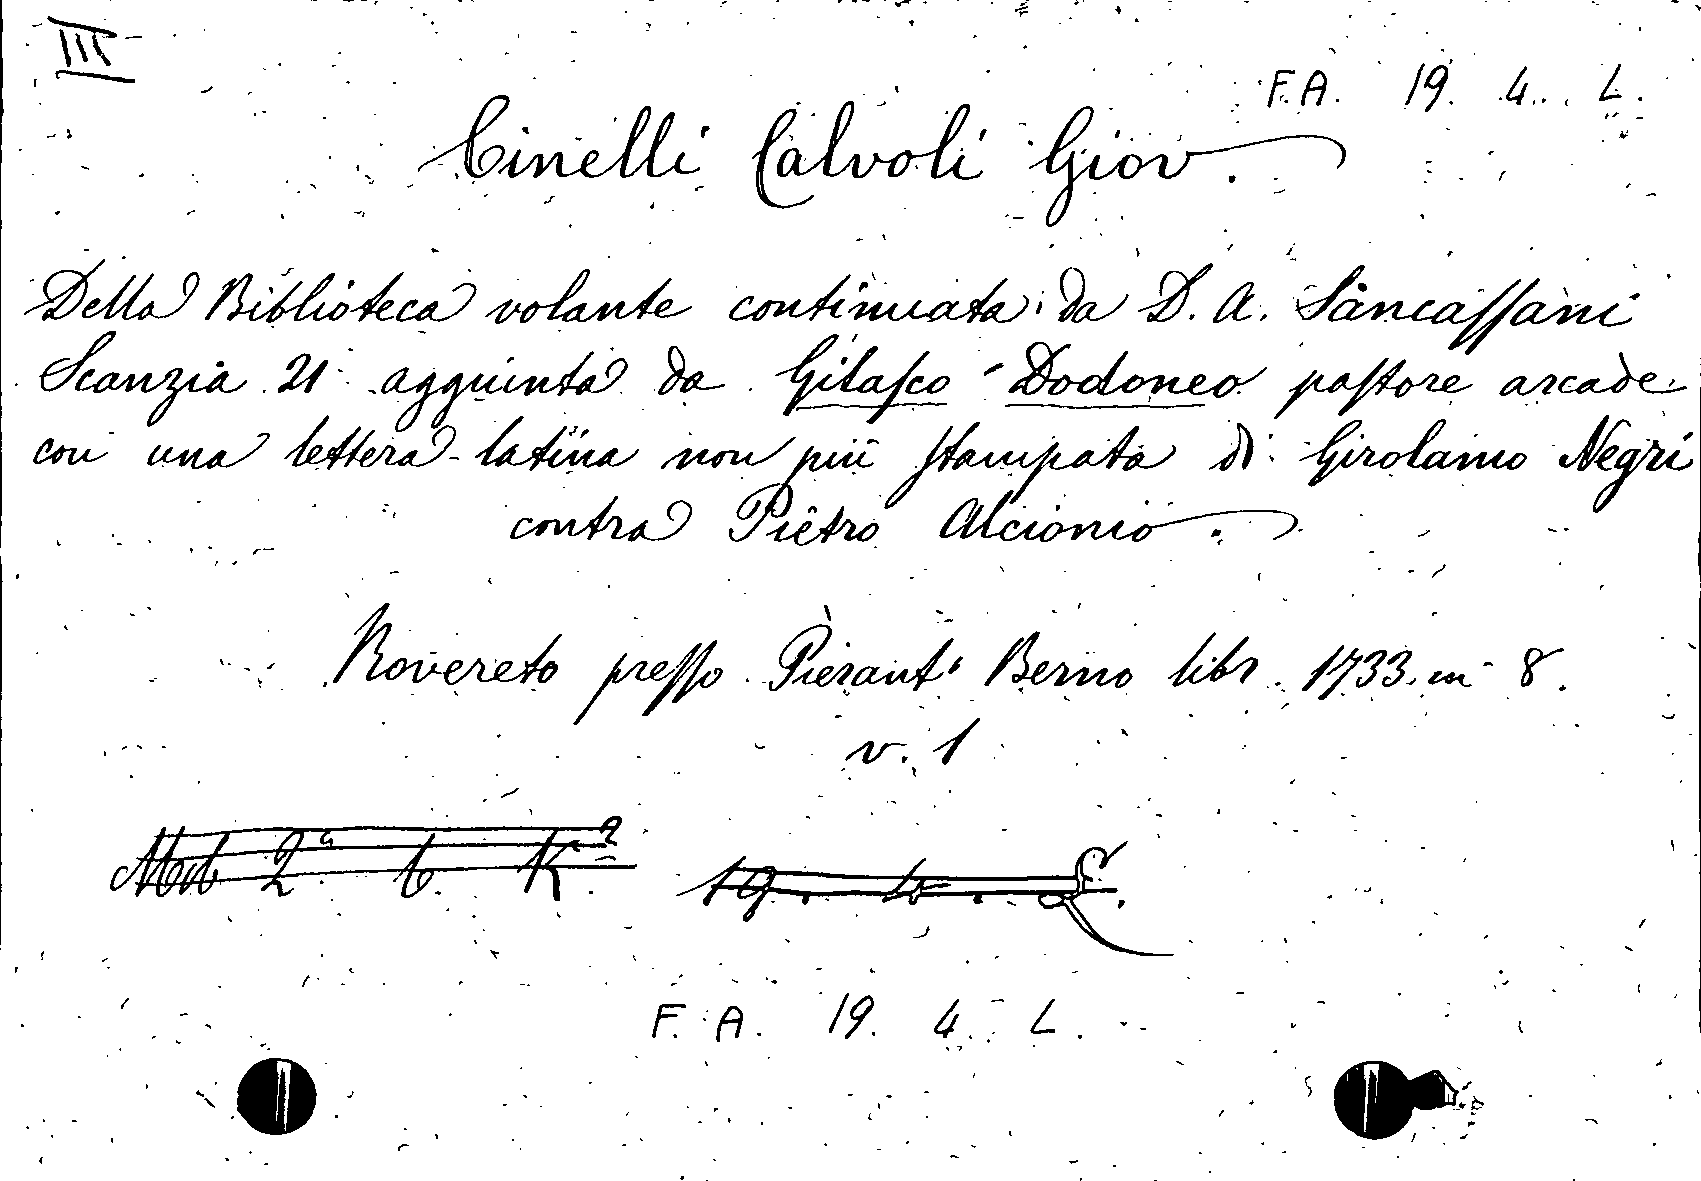 III
F.A. 19. 4. L.
Cinelli Calvoli Giov.
Della Biblioteca volante continuata da D. A. Sancassani
Scanzia 21 aggiunta da Gilasco Dodoneo pastore arcade
con una lettera latina non più stampata di Girolamo Negri
contra Pietro Alcionio.
Rovereto presso Pierant. Berno libr. 1733 in 8.
v. 1
19. 4. L.
F. A. 19. 4. L.